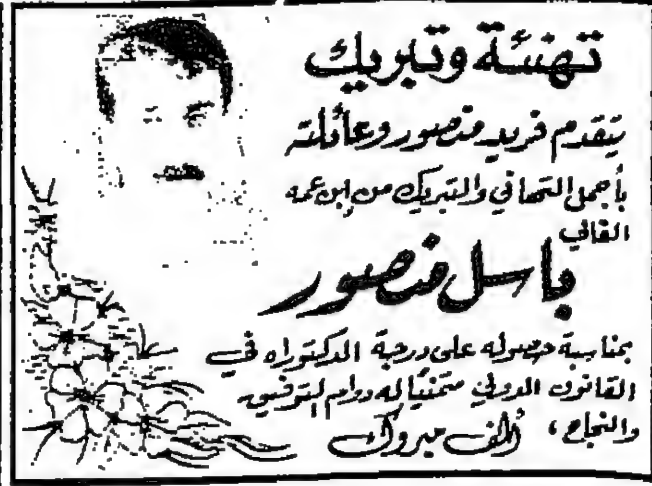 تهنئة وتبريك
يتقدم فريد منصور وعائلته
بأجمل التهاني والتبريك من إبن عمه
الغالي
باسل منصور
بمناسبة حصوله على درجة الدكتوراه في
القانون الدولي متمنياً له دوام التوفيق
والنجاح، ألف مبروك